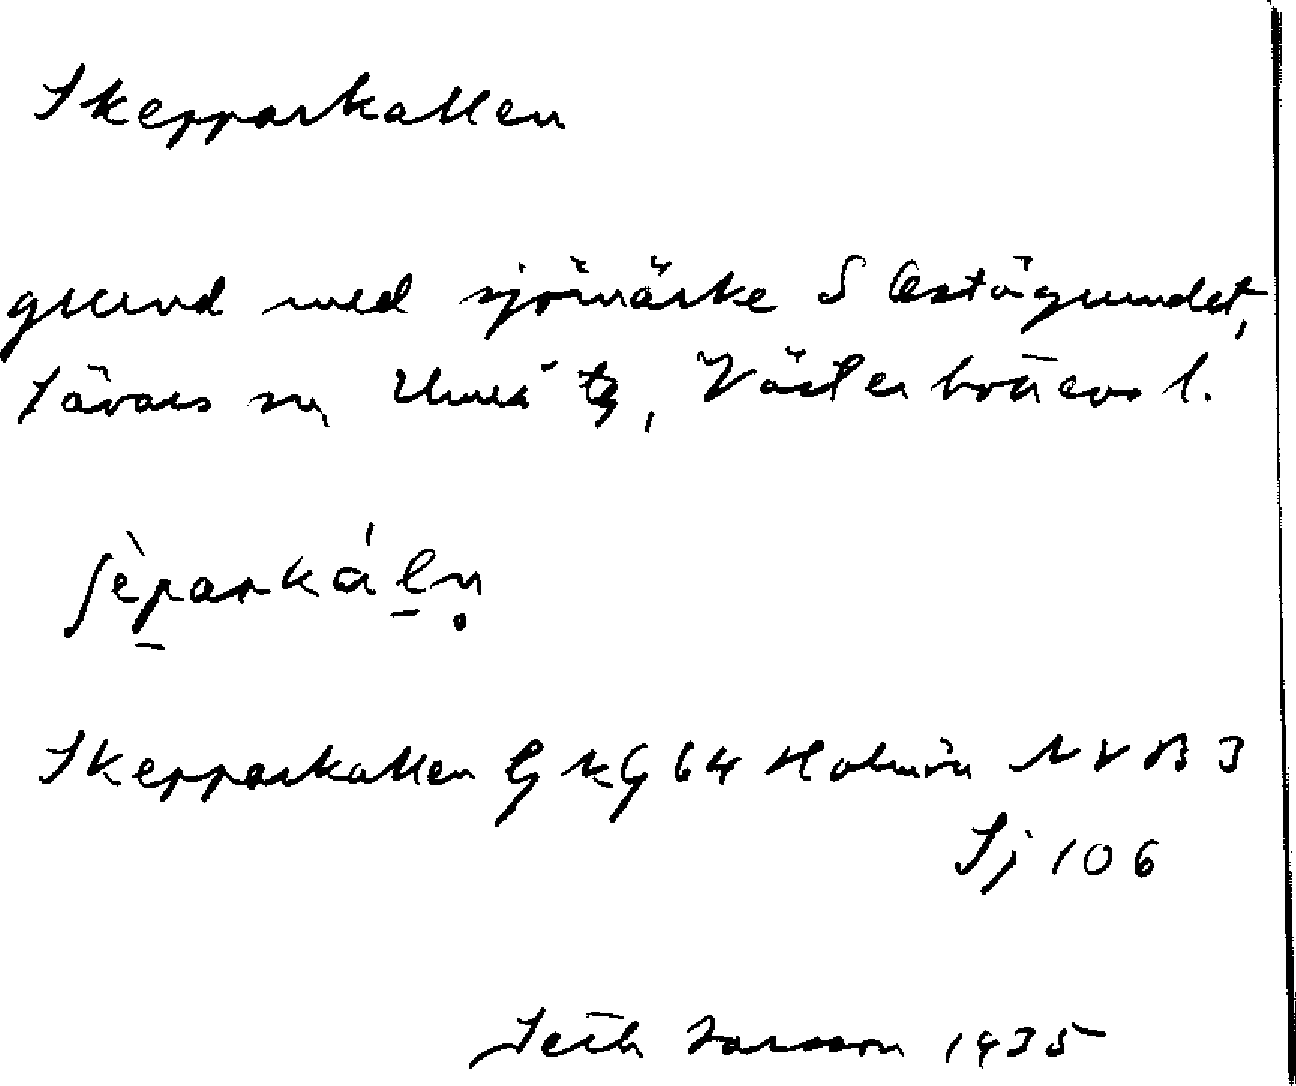 Skepparkallen
grund med sjömärke S Ostögrundet,
Sävars sn Umeå tg, Västerbottens l.
ʃèparkáln̥
Skepparkallen G kG 64 Holmön NV B 3
Sj 106
Seth Larsson 1935